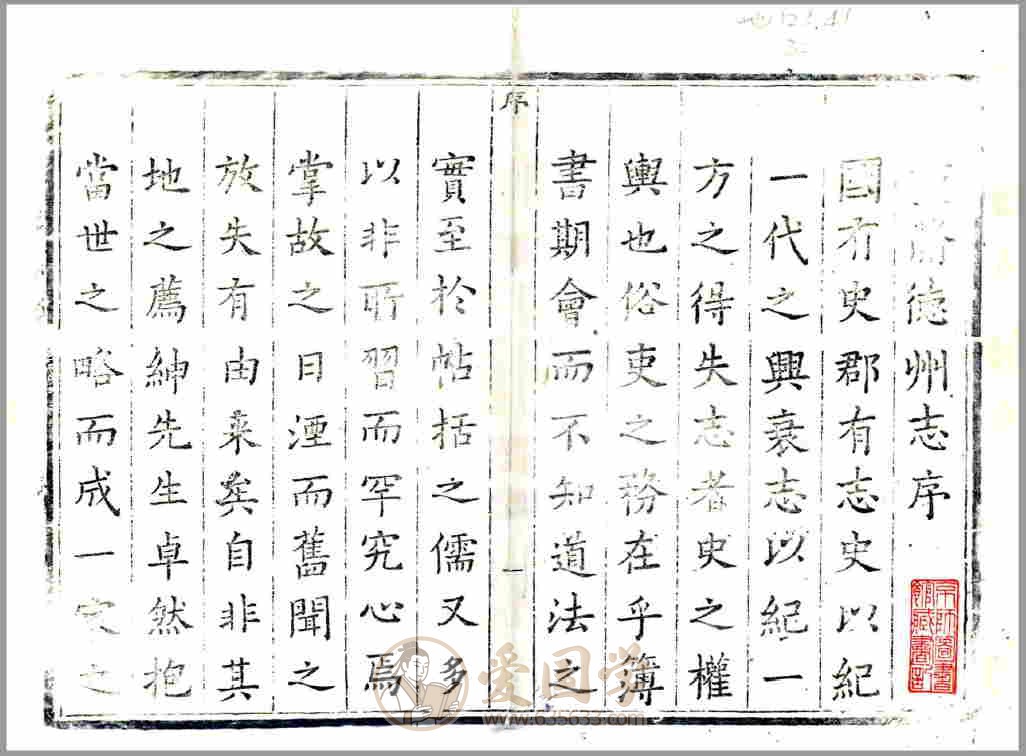 德州志序
國有史郡有志史以紀
一代之興衰志以紀一
方之得失志者史之權
輿也俗吏之務在乎簿
書期會而不知道法之
序
一
實至於帖括之儒又多
以非所習而罕究心焉
掌故之日湮而舊聞之
放失有由来矣自非其
地之薦紳先生卓然抱
當世之略而成一家之
京師圖書
館藏書記
爱国学
www.635633.com